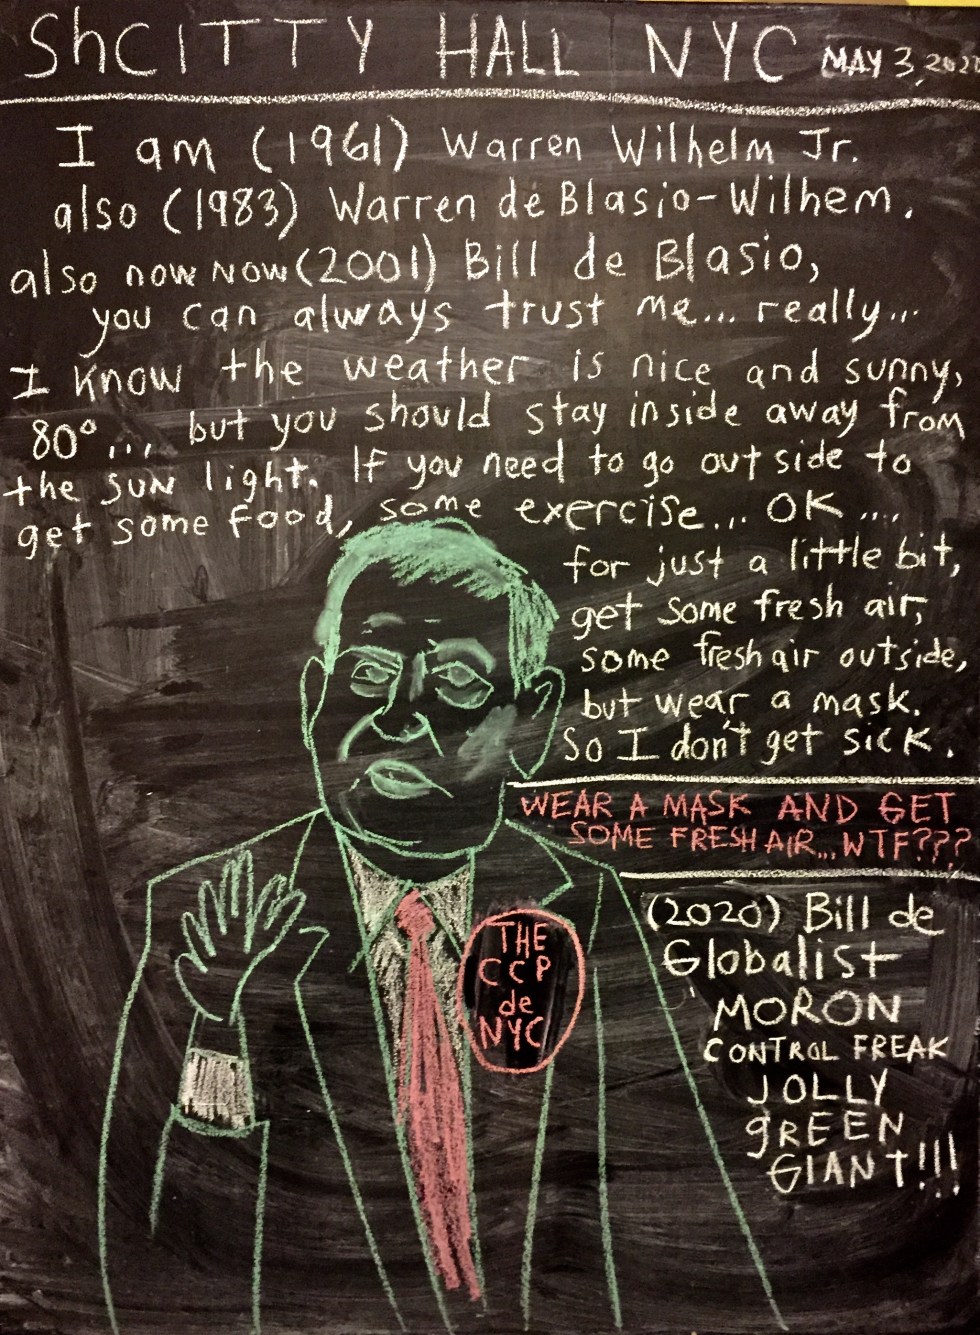 ShCITTY HALL NYC MAY 3, 2020
I am (1961) Warren Wilhelm Jr.
also (1983) Warren de Blasio-Wilhem.
also now NOW (2001) Bill de Blasio,
you can always trust me... really...
I KNOW the weather is nice and sunny,
80° ... but you should stay inside away from
the SUN light. If you need to go out side to
get some food, some exercise... OK ....
for just a little bit,
get some fresh air,
some fresh air outside,
but wear a mask.
So I don't get sick.
WEAR A MASK AND GET
SOME FRESH AIR... WTF???
THE
CCP
de
NYC
(2020) Bill de
Globalist
MORON
CONTROL FREAK
JOLLY
gREEN
GIANT!!!